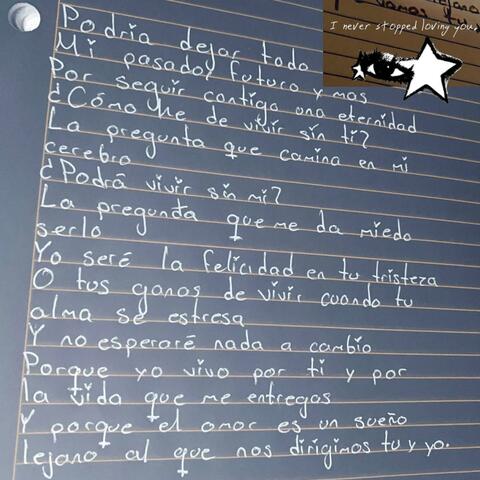 I never stopped loving you.
Podría dejar todo
Mi pasado, futuro y mas
Por seguir contigo una eternidad
¿Cómo he de vivir sin ti?
La pregunta que camina en mi
cerebro
¿Podrá vivir sin mi?
La pregunta que me da miedo
serlo
Yo seré la felicidad en tu tristeza
O tus ganas de vivir cuando tu
alma se estresa
Y no esperaré nada a cambio
Porque yo vivo por ti y por
la vida que me entregas
Y porque el amor es un sueño
lejano al que nos dirigimos tu y yo.